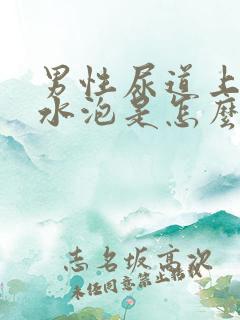 男性尿道上
水泡是怎麼
志名坂高次
未经同意禁止转载